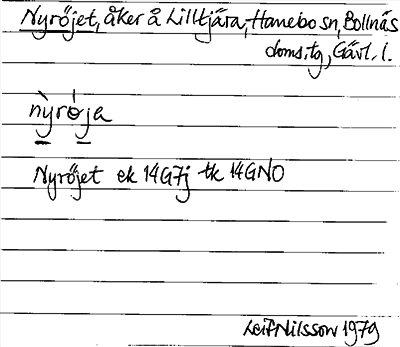 Nyröjet, åker å Lilltjära, Hanebo sn, Bollnäs
doms.tg, Gävl. l.
nyròja
Nyröjet ek 14G7j tk 14GNO
Leif Nilsson 1979